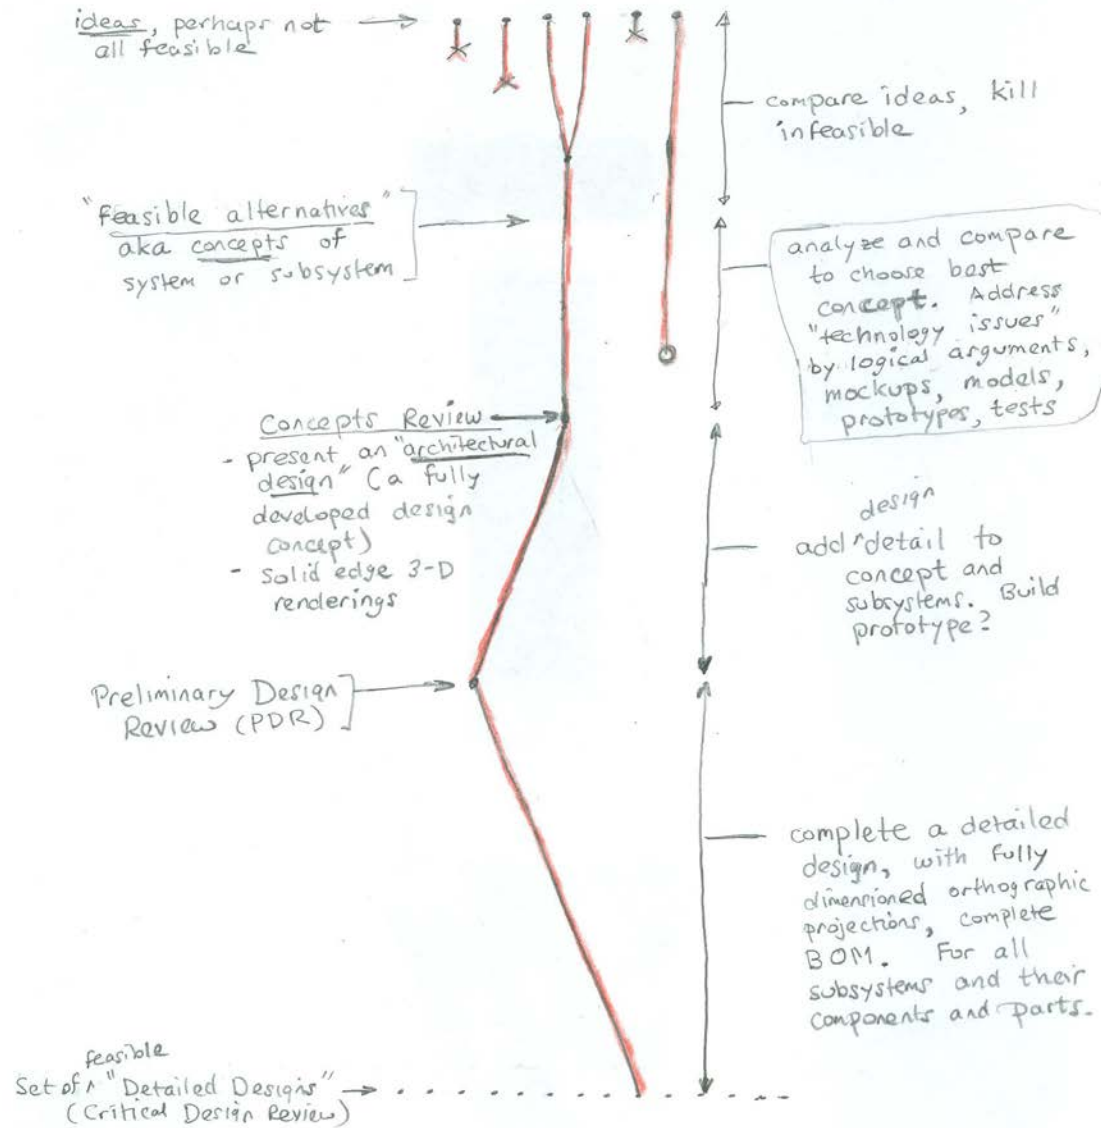 ideas, perhaps not
all feasible
compare ideas, kill
infeasible
"feasible alternatives"
aka concepts of
system or subsystem
analyze and compare
to choose best
concept. Address
"technology issues"
by logical arguments,
mockups, models,
prototypes, tests
Concepts Review
- present an "architectural
design" (a fully
developed design
concept)
- solid edge 3-D
renderings
design
add ^ detail to
concept and
subsystems. Build
prototype?
Preliminary Design
Review (PDR)
complete a detailed
design, with fully
dimensioned orthographic
projections, complete
BOM. For all
subsystems and their
components and parts.
feasible
Set of ^ "Detailed Designs"
(Critical Design Review)